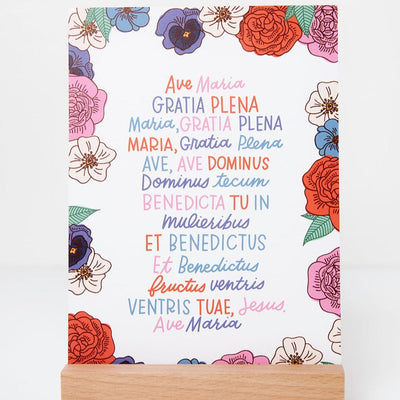 Ave Maria
GRATIA PLENA
Maria, GRATIA PLENA
MARIA, Gratia Plena
AVE, AVE DOMINUS
Dominus tecum
BENEDICTA TU IN
Mulieribus
ET BENEDICTUS
Et Benedictus
fructus ventris
VENTRIS TUAE, Jesus.
Ave Maria